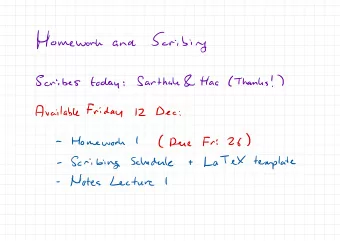 Homework and Scribing
Scribes today: Sarthak & Hao (Thanks!)
Available Friday 12 Dec:
- Homework 1 (Due Fri 26)
- Scribing Schedule + LaTeX template
- Notes Lecture 1